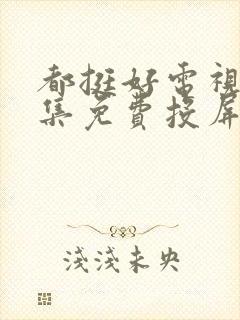 都挺好電視
集免費投屏
淺淺未央